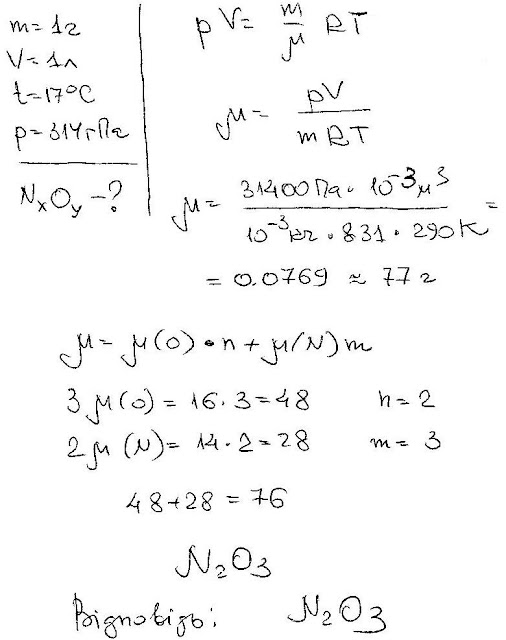 m=1г
V=1л
t=17°C
p=314гПа
NxOy-?
pV= m/μ RT
μ= pV/mRT
μ= 31400Па·10⁻³м³/10⁻³кг·831·290К =
= 0.0769 ≈ 77г
μ= μ(O)·n+μ(N)m
3μ(O)=16·3=48 n=2
2μ(N)=14·2=28 m=3
48+28=76
N₂O₃
Відповідь: N₂O₃